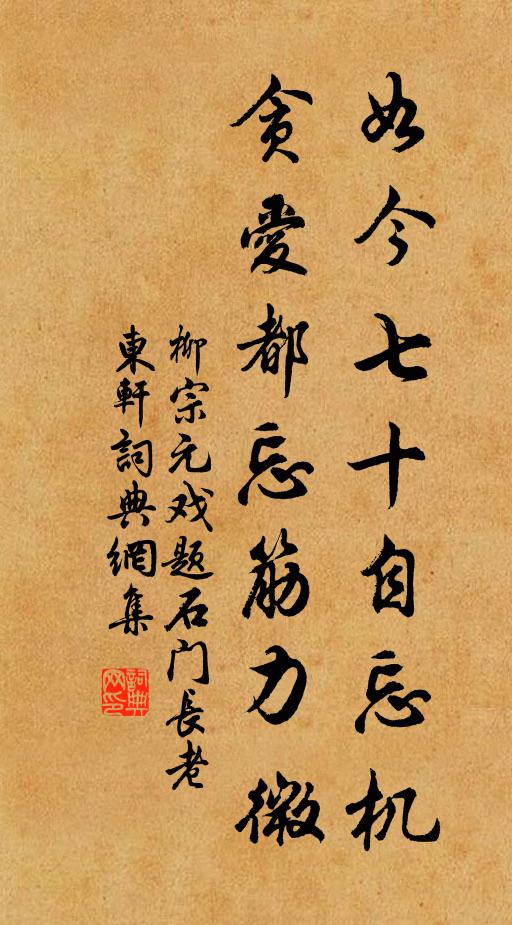 如今七十自忘机
贪爱都忘筋力微
柳宗元戏题石门長老
東軒詞典網集
詞典网印